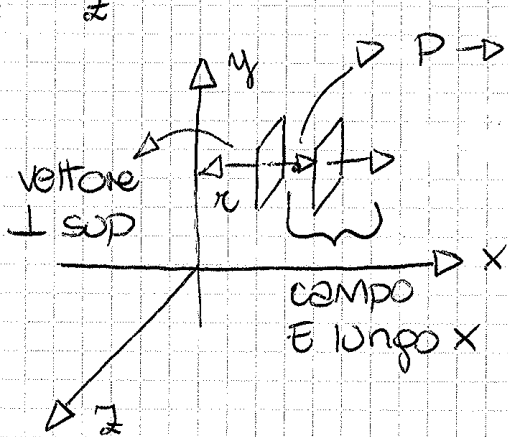 z
y
P →
vettore
⊥ sup
r
x
campo
E lungo x
z